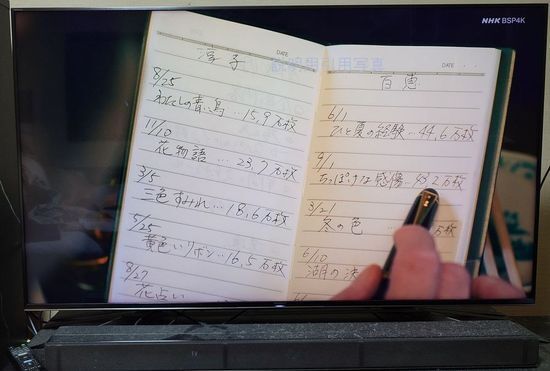 NHK BSP4K
淳子
DATE
8/25
わたしの青い鳥…15,9万枚
11/10
花物語…23,7万枚
3/5
三色すみれ…18,6万枚
5/25
黄色いリボン…16,5万枚
8/27
花占い
DATE
百恵
6/1
ひと夏の経験…44,6万枚
9/1
ちっぽけな感傷…43,2万枚
3/21
冬の色
万枚
6/10
湖の決